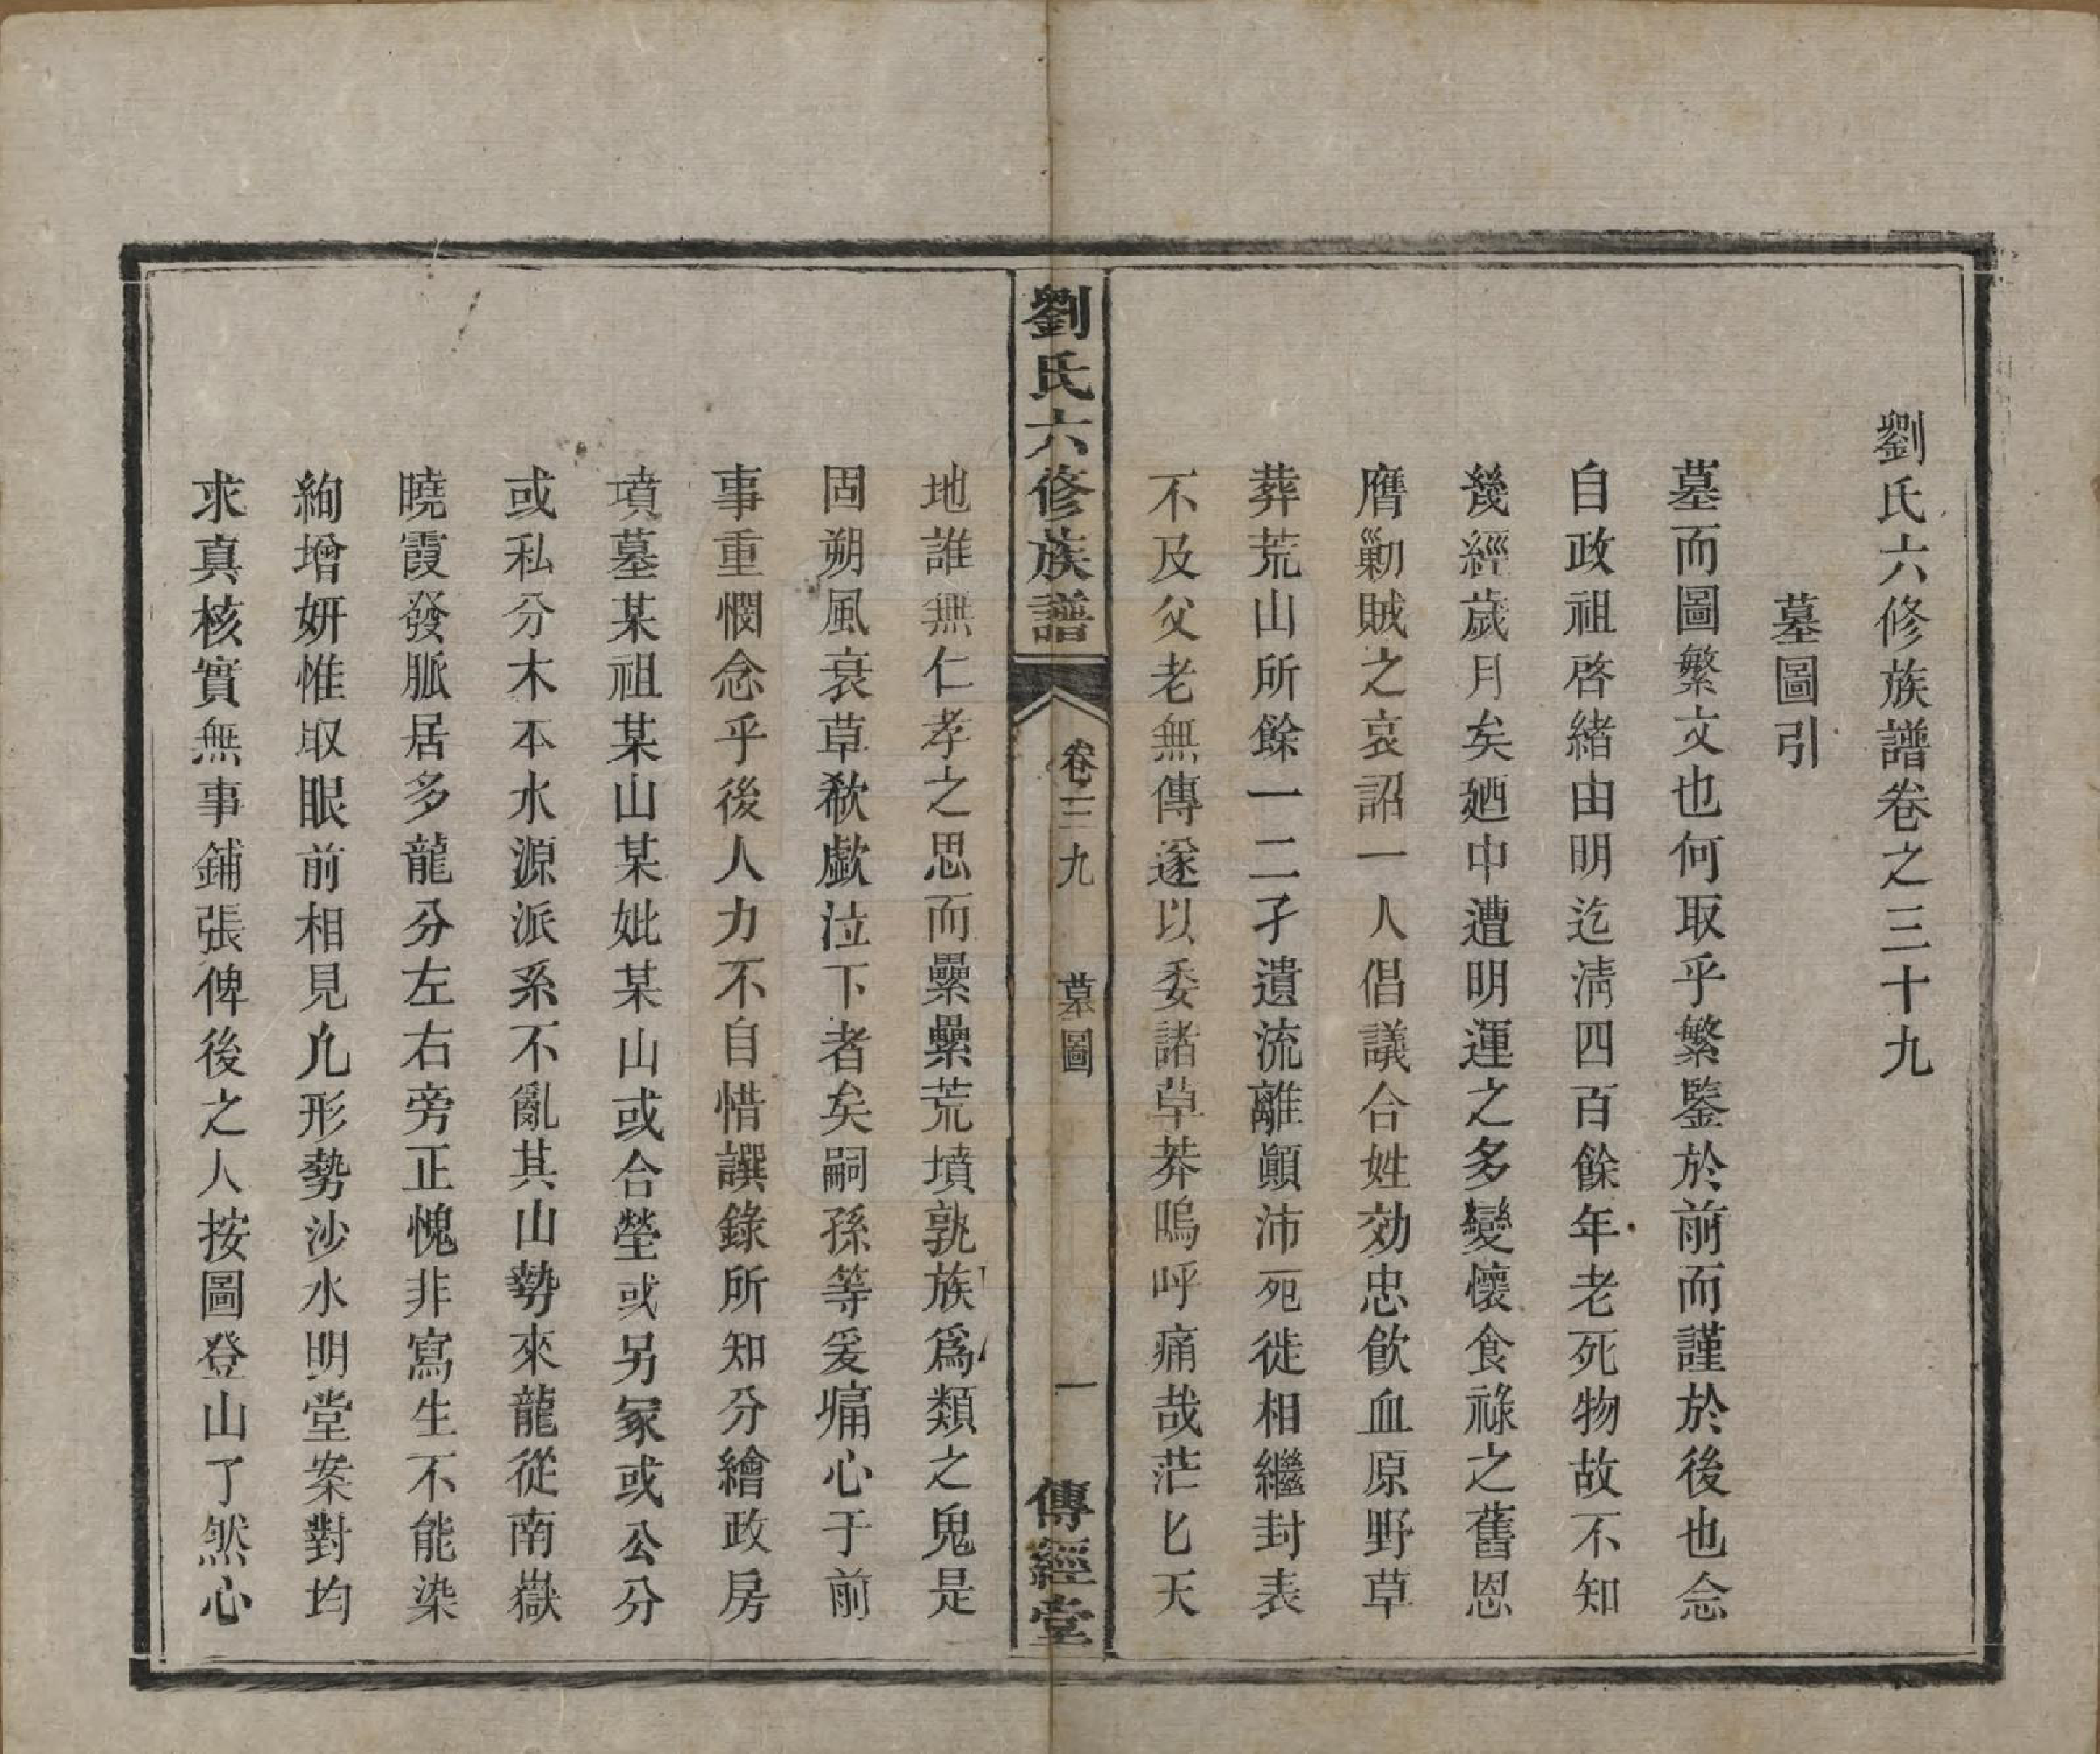 劉氏六修族譜卷之三十九
墓圖引
墓而圖繁文也何取乎繁鑒於前而謹於後也念
自政祖啓緒由明迄淸四百餘年老死物故不知
幾經歲月矣廼中遭明運之多變懷食祿之舊恩
膺勦賊之哀詔一人倡議合姓効忠飮血原野草
葬荒山所餘一二孑遺流離顚沛死徙相繼封表
不及父老無傳遂以委諸草莽嗚呼痛哉茫匕天
劉氏六修族譜
卷三九
墓圖
一
傳經堂
地誰無仁孝之思而纍纍荒墳孰族爲類之鬼是
固朔風衰草欷歔泣下者矣嗣孫等爰痛心于前
事重憫念乎後人力不自惜譔錄所知分繪政房
墳墓某祖某山某妣某山或合塋或另冢或公分
或私分木本水源派系不亂其山勢來龍從南嶽
曉霞發脈居多龍分左右旁正愧非寫生不能染
絢增妍惟取眼前相見凢形勢沙水明堂案對均
求真核實無事鋪張俾後之人按圖登山了然心